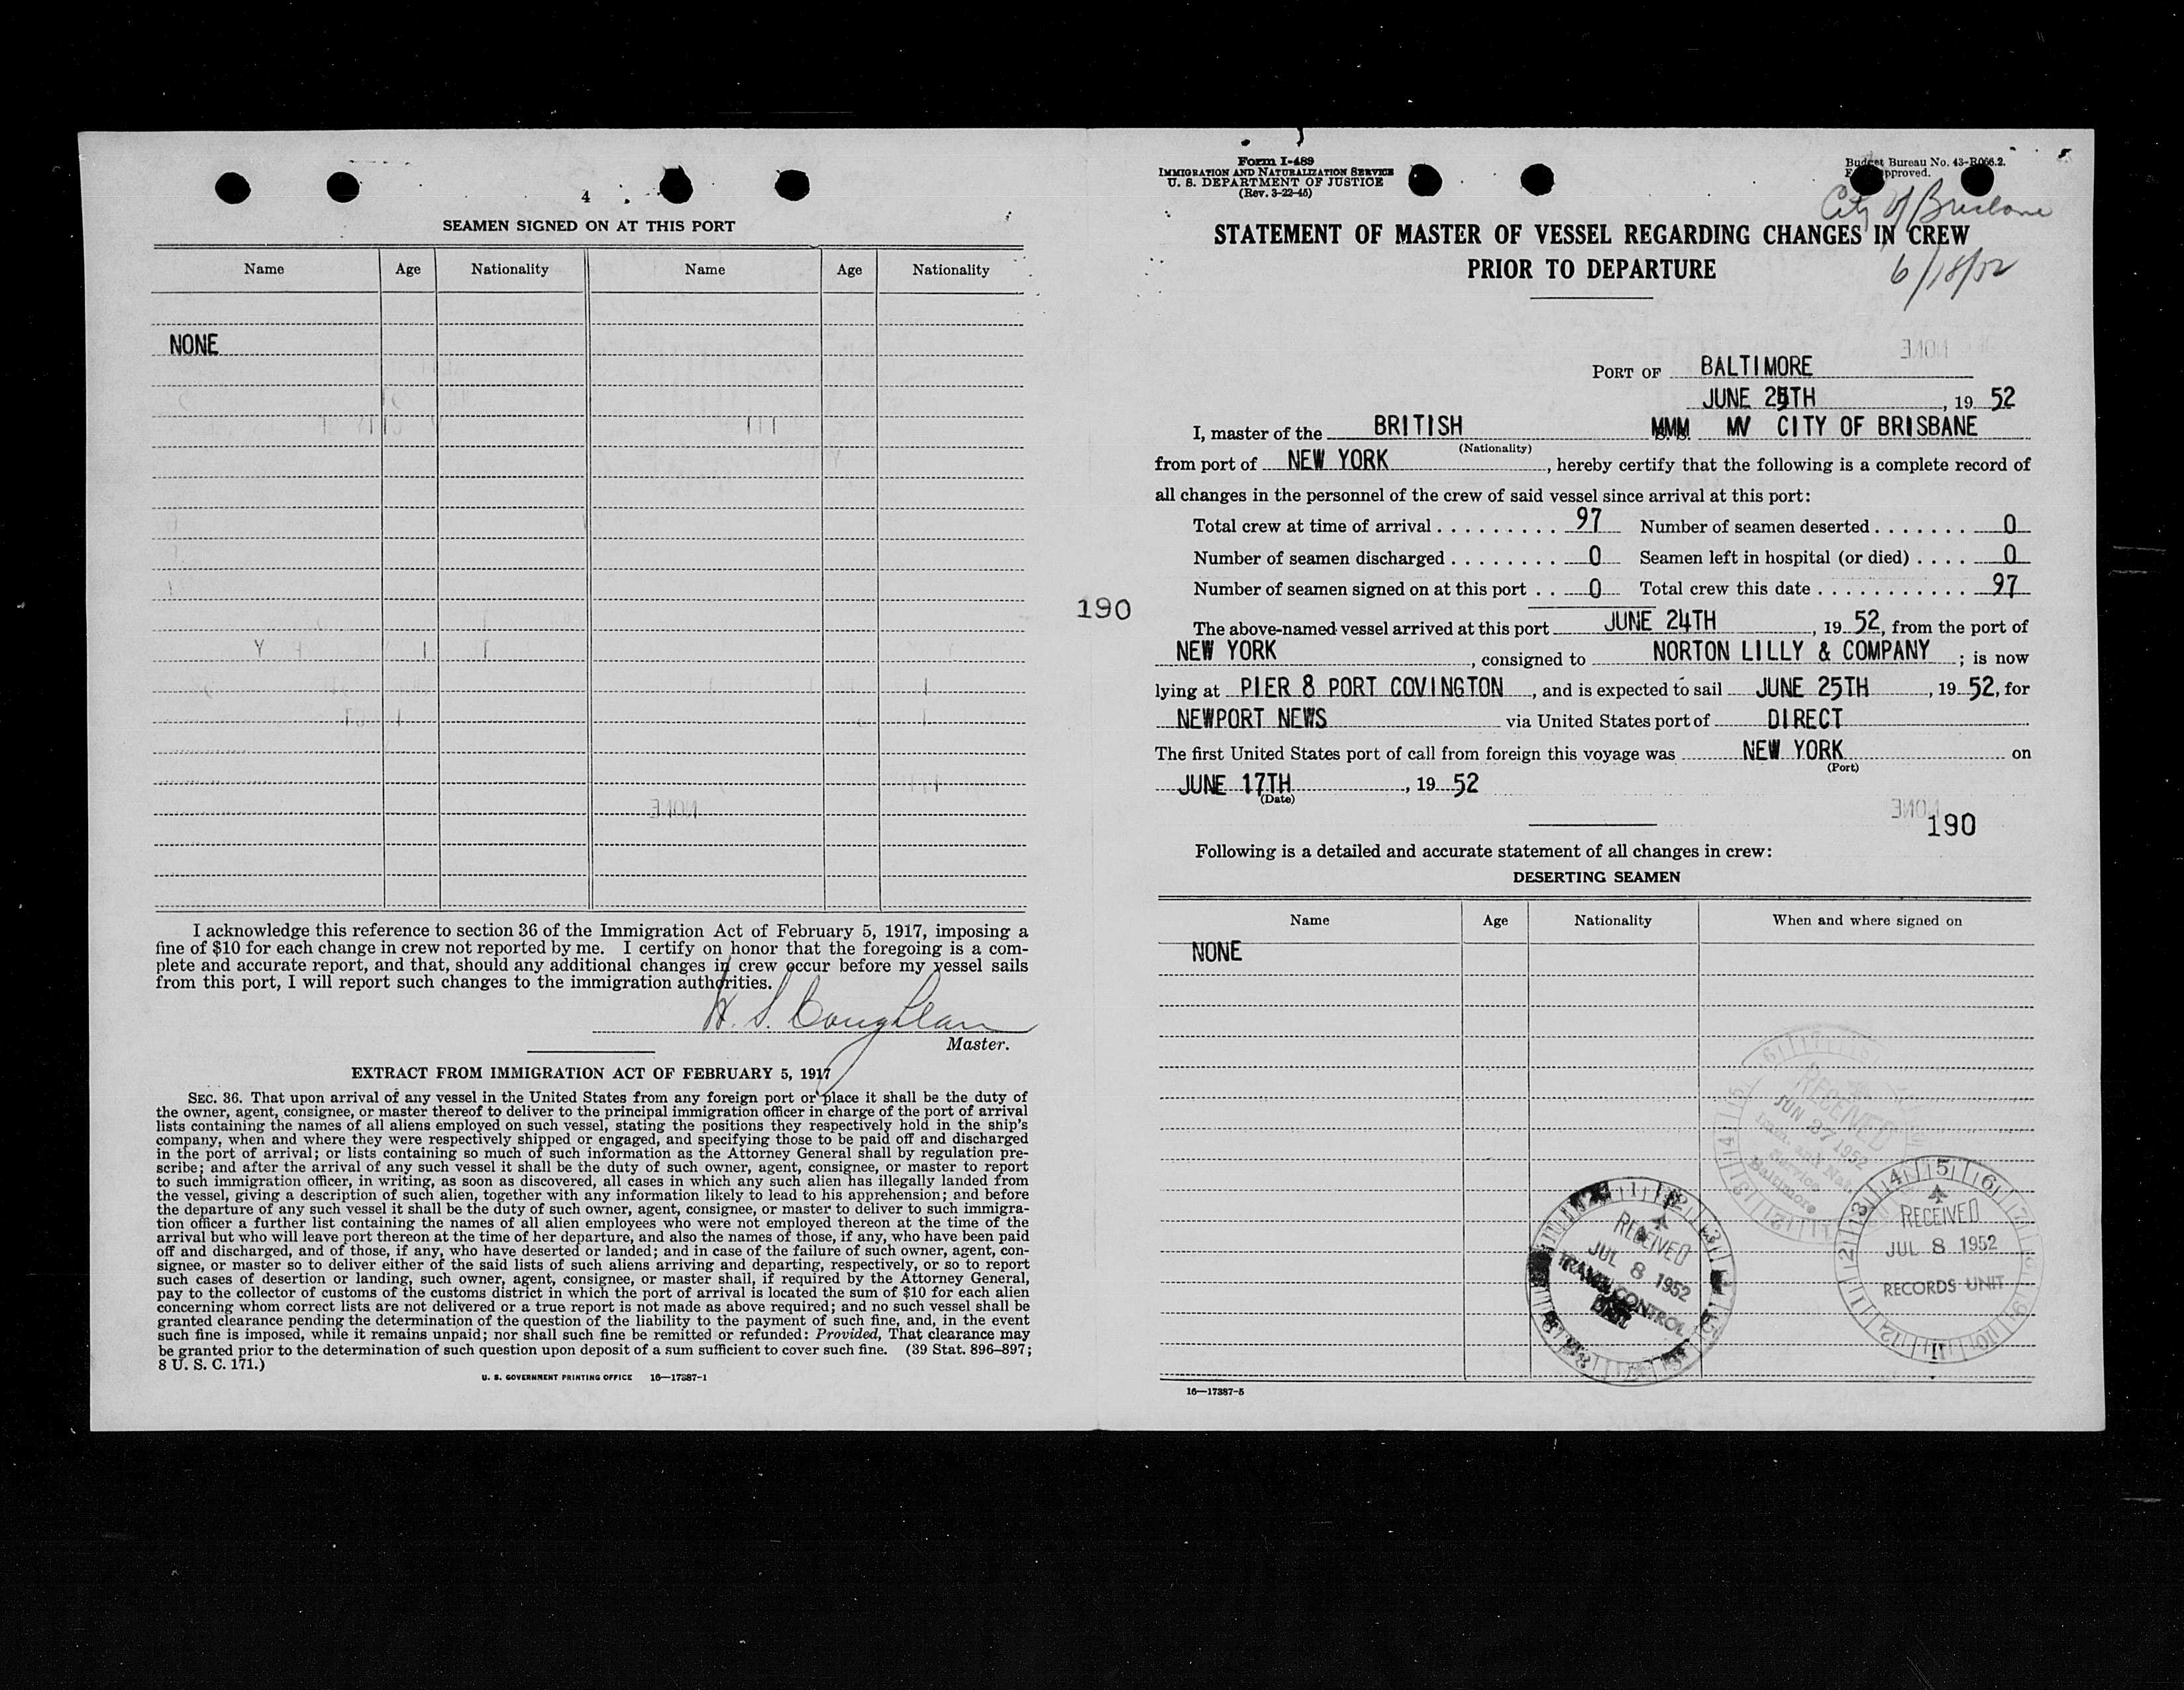 4
SEAMEN SIGNED ON AT THIS PORT
Name Age Nationality Name Age Nationality
NONE
I acknowledge this reference to section 36 of the Immigration Act of February 5, 1917, imposing a
fine of $10 for each change in crew not reported by me. I certify on honor that the foregoing is a com-
plete and accurate report, and that, should any additional changes in crew occur before my vessel sails
from this port, I will report such changes to the immigration authorities.
Master.
EXTRACT FROM IMMIGRATION ACT OF FEBRUARY 5, 1917
SEC. 36. That upon arrival of any vessel in the United States from any foreign port or place it shall be the duty of
the owner, agent, consignee, or master thereof to deliver to the principal immigration officer in charge of the port of arrival
lists containing the names of all aliens employed on such vessel, stating the positions they respectively hold in the ship's
company, when and where they were respectively shipped or engaged, and specifying those to be paid off and discharged
in the port of arrival; or lists containing so much of such information as the Attorney General shall by regulation pre-
scribe; and after the arrival of any such vessel it shall be the duty of such owner, agent, consignee, or master to report
to such immigration officer, in writing, as soon as discovered, all cases in which any such alien has illegally landed from
the vessel, giving a description of such alien, together with any information likely to lead to his apprehension; and before
the departure of any such vessel it shall be the duty of such owner, agent, consignee, or master to deliver to such immigra-
tion officer a further list containing the names of all alien employees who were not employed thereon at the time of the
arrival but who will leave port thereon at the time of her departure, and also the names of those, if any, who have been paid
off and discharged, and of those, if any, who have deserted or landed; and in case of the failure of such owner, agent, con-
signee, or master so to deliver either of the said lists of such aliens arriving and departing, respectively, or so to report
such cases of desertion or landing, such owner, agent, consignee, or master shall, if required by the Attorney General,
pay to the collector of customs of the customs district in which the port of arrival is located the sum of $10 for each alien
concerning whom correct lists are not delivered or a true report is not made as above required; and no such vessel shall be
granted clearance pending the determination of the question of the liability to the payment of such fine, and, in the event
such fine is imposed, while it remains unpaid; nor shall such fine be remitted or refunded: Provided, That clearance may
be granted prior to the determination of such question upon deposit of a sum sufficient to cover such fine. (39 Stat. 896–897;
8 U. S. C. 171.)
U. S. GOVERNMENT PRINTING OFFICE 16—17387-1
190
Form I-489
IMMIGRATION AND NATURALIZATION SERVICE
U. S. DEPARTMENT OF JUSTICE
(Rev. 3-22-45)
Budget Bureau No. 43-R066.2.
approved.
City of Brisbane
6/18/52
STATEMENT OF MASTER OF VESSEL REGARDING CHANGES IN CREW
PRIOR TO DEPARTURE
PORT OF BALTIMORE
JUNE 25TH, 19 52
I, master of the BRITISH MMM MV CITY OF BRISBANE
(Nationality)
from port of NEW YORK, hereby certify that the following is a complete record of
all changes in the personnel of the crew of said vessel since arrival at this port:
Total crew at time of arrival . . . . . . . . . 97 Number of seamen deserted . . . . . . . 0
Number of seamen discharged . . . . . . . . 0 Seamen left in hospital (or died) . . . . 0
Number of seamen signed on at this port . . 0 Total crew this date . . . . . . . . . . . . 97
The above-named vessel arrived at this port JUNE 24TH, 19 52, from the port of
NEW YORK, consigned to NORTON LILLY & COMPANY; is now
lying at PIER 8 PORT COVINGTON, and is expected to sail JUNE 25TH, 19 52, for
NEWPORT NEWS via United States port of DIRECT
The first United States port of call from foreign this voyage was NEW YORK on
(Port)
JUNE 17TH, 19 52
(Date)
190
Following is a detailed and accurate statement of all changes in crew:
DESERTING SEAMEN
Name Age Nationality When and where signed on
NONE
RECEIVED
JUN 27 1952
Imm. and Nat.
Service
Baltimore
RECEIVED
JUL 8 1952
TRAVEL CONTROL
RECEIVED
JUL 8 1952
RECORDS UNIT
16—17387-5